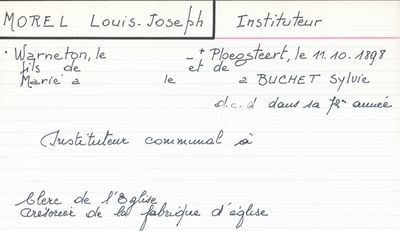 MOREL Louis-Joseph Instituteur
° Warneton, le - + Ploegsteert, le 11.10.1898
fils de et de
Marié à le à BUCHET Sylvie
d.c.d dans sa 72e année
Instituteur communal à
Clerc de l'Eglise
trésorier de la fabrique d'église